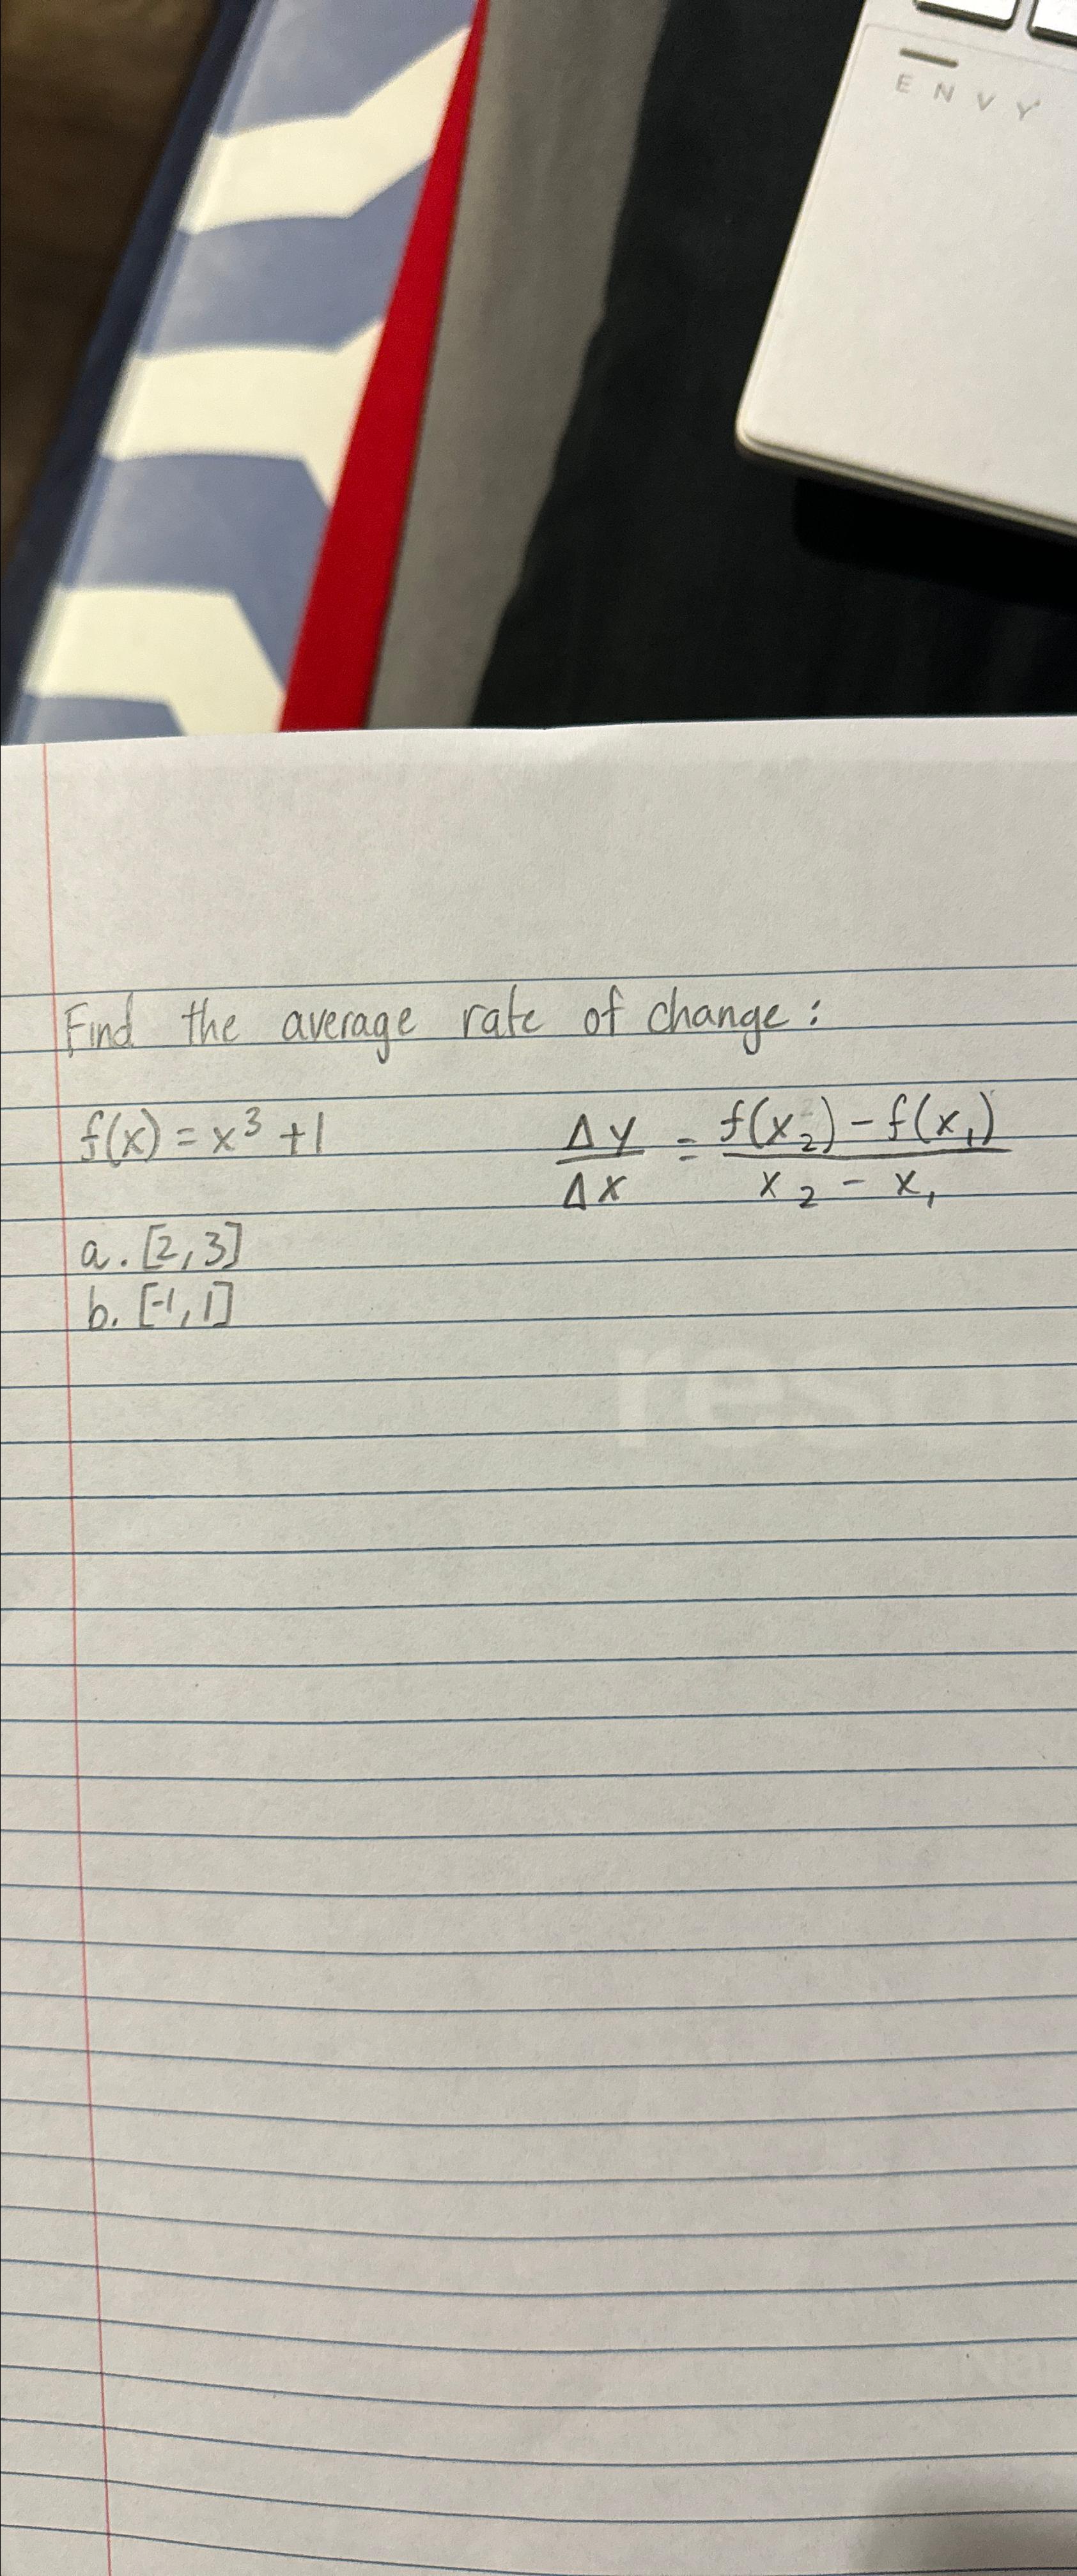 ENVY
Find the average rate of change:
f(x) = x³ + 1
Δy/Δx = f(x₂) - f(x₁)/x₂ - x₁
a. [2, 3]
b. [-1, 1]
res